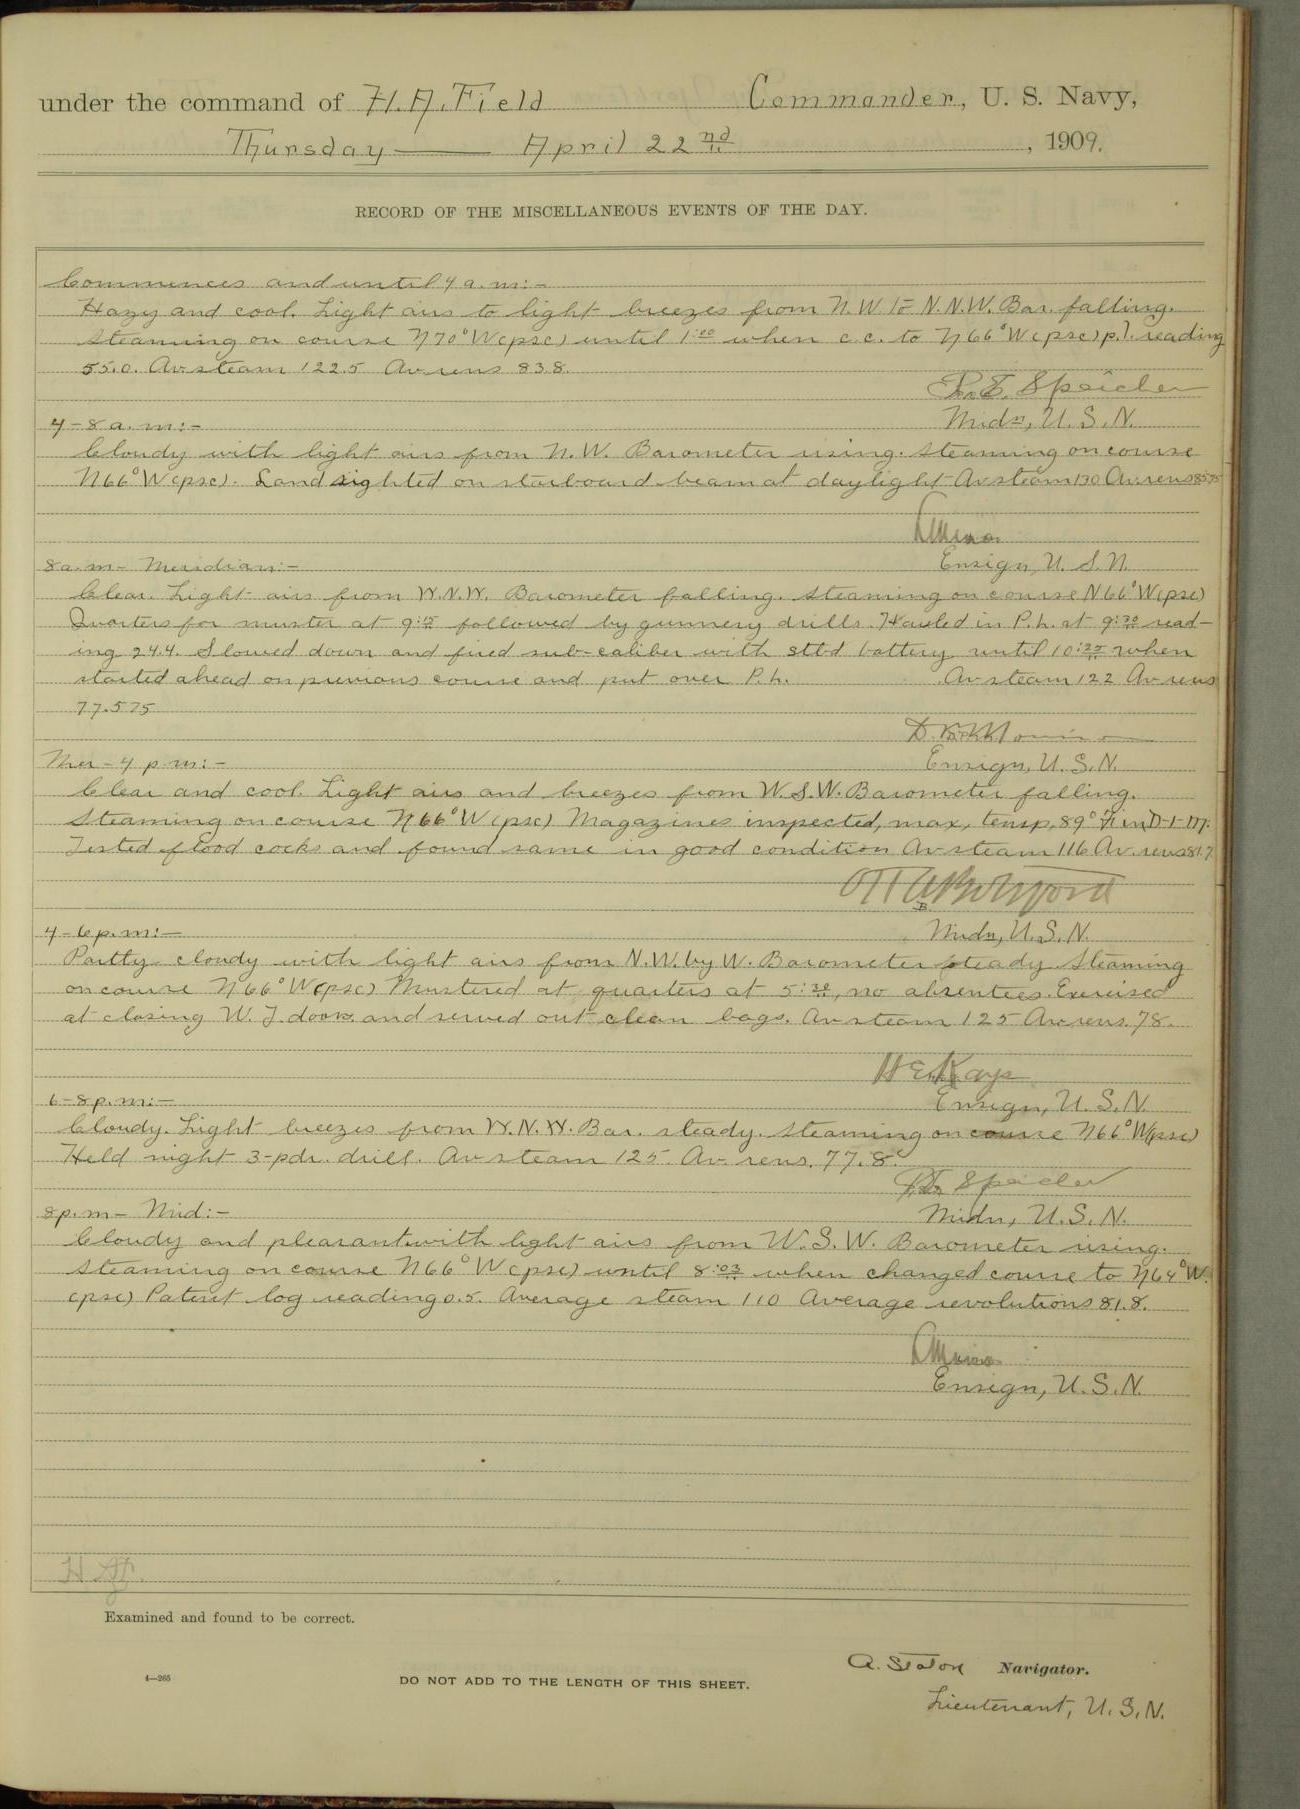 under the command of H.A. Field Commander, U. S. Navy,
Thursday — April 22nd, 1909.
RECORD OF THE MISCELLANEOUS EVENTS OF THE DAY.
Commences and until 4 a.m:-
Hazy and cool. Light airs to light breezes from N.W to N.N.W. Bar. falling.
Steaming on course N70°W(psc) until 1:00 when c.c. to N66°W(psc) p.l. reading
55.0. Av steam 122.5 Av revs 83.8.
R.E. Speicher
Midn, U.S.N.
4-8 a.m:-
Cloudy with light airs from N.W. Barometer rising. Steaming on course
N66°W(psc). Land sighted on starboard beam at daylight Av steam 130 Av. revs
Ensign, U.S.N.
8 a.m- Meridian:-
Clear. Light airs from W.N.W. Barometer falling. Steaming on course N66°W(psc)
Quarters for muster at 9:15 followed by gunnery drills. Hauled in P.h. at 9:30 read-
ing 24.4. Slowed down and fired sub-caliber with stbd battery until 10:25 when
started ahead on previous course and put over P.h. Av steam 122 Av revs
77.575
Ensign, U.S.N.
Mer-4 p.m:-
Clear and cool. Light airs and breezes from W.S.W. Barometer falling.
Steaming on course N66°W(psc) Magazines inspected, max, temp, 89°F in D-1-M.
Tested flood cocks and found same in good condition Av steam 116 Av. revs 81.7
Midn, U.S.N.
4-6 p.m:-
Partly cloudy with light airs from N.W. by W. Barometer steady Steaming
on course N66°W(psc) Mustered at quarters at 5:30, no absentees. Exercised
at closing W.T. doors and served out clean bags. Av steam 125 Av revs. 78.
H E Kays
Ensign, U.S.N.
6-8 p.m:-
Cloudy. Light breezes from W.N.W. Bar. steady. Steaming on course N66°W(psc)
Held night 3-pdr. drill. Av steam 125. Av. revs. 77.8.
R.E. Speicher
Midn, U.S.N.
8 p.m- Mid:-
Cloudy and pleasant with light airs from W.S.W. Barometer rising.
Steaming on course N66°W(psc) until 8:03 when changed course to N64°W.
(psc) Patent log reading 0.5. Average steam 110 Average revolutions 81.8.
Ensign, U.S.N.
Examined and found to be correct.
A. Staton Navigator.
4—265 DO NOT ADD TO THE LENGTH OF THIS SHEET.
Lieutenant, U.S.N.